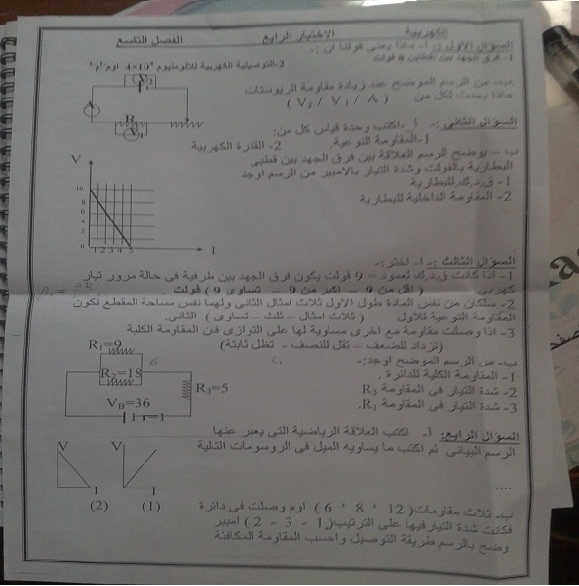 الكهربية الاختبار الرابع الفصل التاسع
السؤال الاول :- أ- ماذا يعنى قولنا ان :-
1- فرق الجهد بين نقطتين 8 فولت
2- التوصيلية الكهربية للالومنيوم 4×10⁴ اوم⁻¹م⁻¹
ب- من الرسم الموضح عند زيادة مقاومة الريوستات
ماذا يحدث لكل من ( V₂ / V₁ / A )
V₂
A
R
V₁
السؤال الثانى :- أ- اكتب وحدة قياس كل من:
1-المقاومة النوعية. 2- القدرة الكهربية
ب – يوضح الرسم العلاقة بين فرق الجهد بين قطبى
البطارية بالفولت وشدة التيار بالامبير من الرسم اوجد
1- ق.د.ك للبطارية
2- المقاومة الداخلية للبطارية
V
10
8
6
4
2
0
1 2 3 4 5
I
السؤال الثالث :- أ- اختر:-
1- اذا كانت ق.د.ك لعمود = 9 فولت يكون فرق الجهد بين طرفية فى حالة مرور تيار
كهربى. ( اقل من 9 – اكبر من 9 – تساوى 9 ) فولت
2- سلكان من نفس المادة طول الاول ثلاث امثال الثانى ولهما نفس مساحة المقطع تكون
المقاومة النوعية للاول ( ثلاث امثال – ثلث – تساوى ) الثانى.
3- اذا وصلت مقاومة مع اخرى مساوية لها على التوازى فان المقاومة الكلية
(تزداد للضعف – تقل للنصف - تظل ثابتة)
ب- من الرسم الموضح اوجد:-
1- المقاومة الكلية للدائرة .
2- شدة التيار فى المقاومة R₃
3- شدة التيار فى المقاومة R₁.
R₁=9
6
R₂=18
R₃=5
V_B=36
r=1
السؤال الرابع: أ- اكتب العلاقة الرياضية التى يعبر عنها
الرسم البيانى ثم اكتب ما يساويه الميل فى الرسومات التالية
....
V V
I I
(2) (1)
ب- ثلاث مقاومات( 12 ، 8 ، 6 ) اوم وصلت فى دائرة
فكانت شدة التيار فيها على الترتيب( 1 - 3 - 2 ) امبير
وضح بالرسم طريقة التوصيل واحسب المقاومة المكافئة